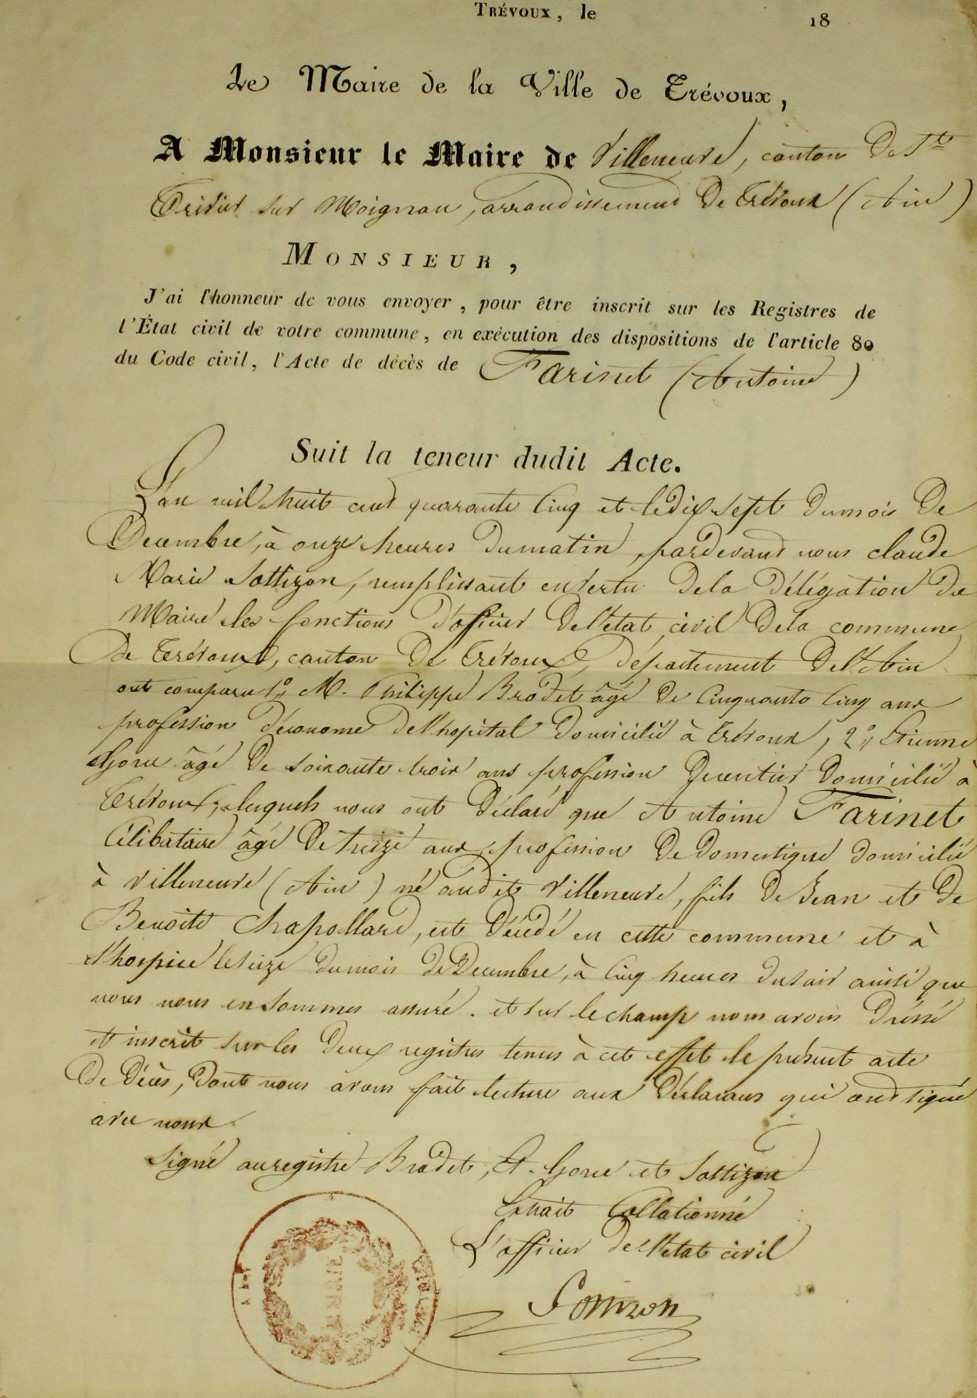 Trévoux, le 18
Le Maire de la Ville de Trévoux,
A Monsieur le Maire de Villeneuve, canton De St
Trivier sur Moignan, arrondissement De Trévoux (Ain)
Monsieur,
J'ai l'honneur de vous envoyer, pour être inscrit sur les Registres de
l'État civil de votre commune, en exécution des dispositions de l'article 80
du Code civil, l'Acte de décès de Farinet (Antoine)
Suit la teneur dudit Acte.
L'an mil huit cent quarante Cinq et le dix sept du mois De
Décembre, à onze heures du matin, pardevant nous claude
Marie Sottizon, remplissant en vertu De la Délégation Du
Maire les fonctions D'officier De l'état civil De la commune
De Trévoux, canton De Trévoux, Département De l'Ain
ont comparu 1° M. Philippe Brodet âgé De Cinquante Cinq ans
profession d'économe De l'hopital Domicilié à Trévoux, 2° Etienne
Goné âgé De soixante trois ans profession De rentier Domicilié à
Trévoux, lesquels nous ont Déclaré que Antoine Farinet
Célibataire âgé De treize ans profession De Domestique Domicilié
à Villeneuve (Ain) né audit Villeneuve, fils De Jean et De
Benoite Chapollard, est Décédé en cette commune et à
l'hospice le seize du mois De Décembre, à Cinq heures du soir ainsi que
nous nous en sommes assuré. et sur le champ nous avons Dressé
et inscrit sur les Deux registres tenus à cet effet le présent acte
De Décès, Dont nous avons fait lecture aux Déclarans qui ont signé
avec nous.
Signé au registre Brodet, E. Goné et Sottizon
Extrait Collationné
L'officier De l'état civil
Sottizon